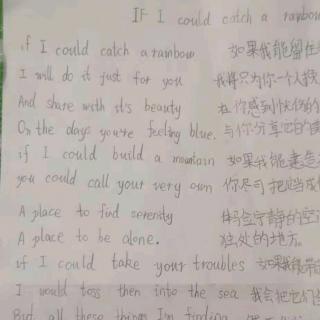 IF I could catch a rainbow
if I could catch a rainbow 如果我能留住
I will do it just for you 我将只为你一个人
And share with it's beauty 在你感到忧伤的
On the days you're feeling blue. 与你分享它的美
if I could build a mountain 如果我能建造
you could call your very own 你尽可把它当成
A place to find serenity 一个宁静的空
A place to be alone. 独处的地方。
if I could take your troubles 如果我能
I would toss then into the sea 我会把它们
But all these things I'm finding